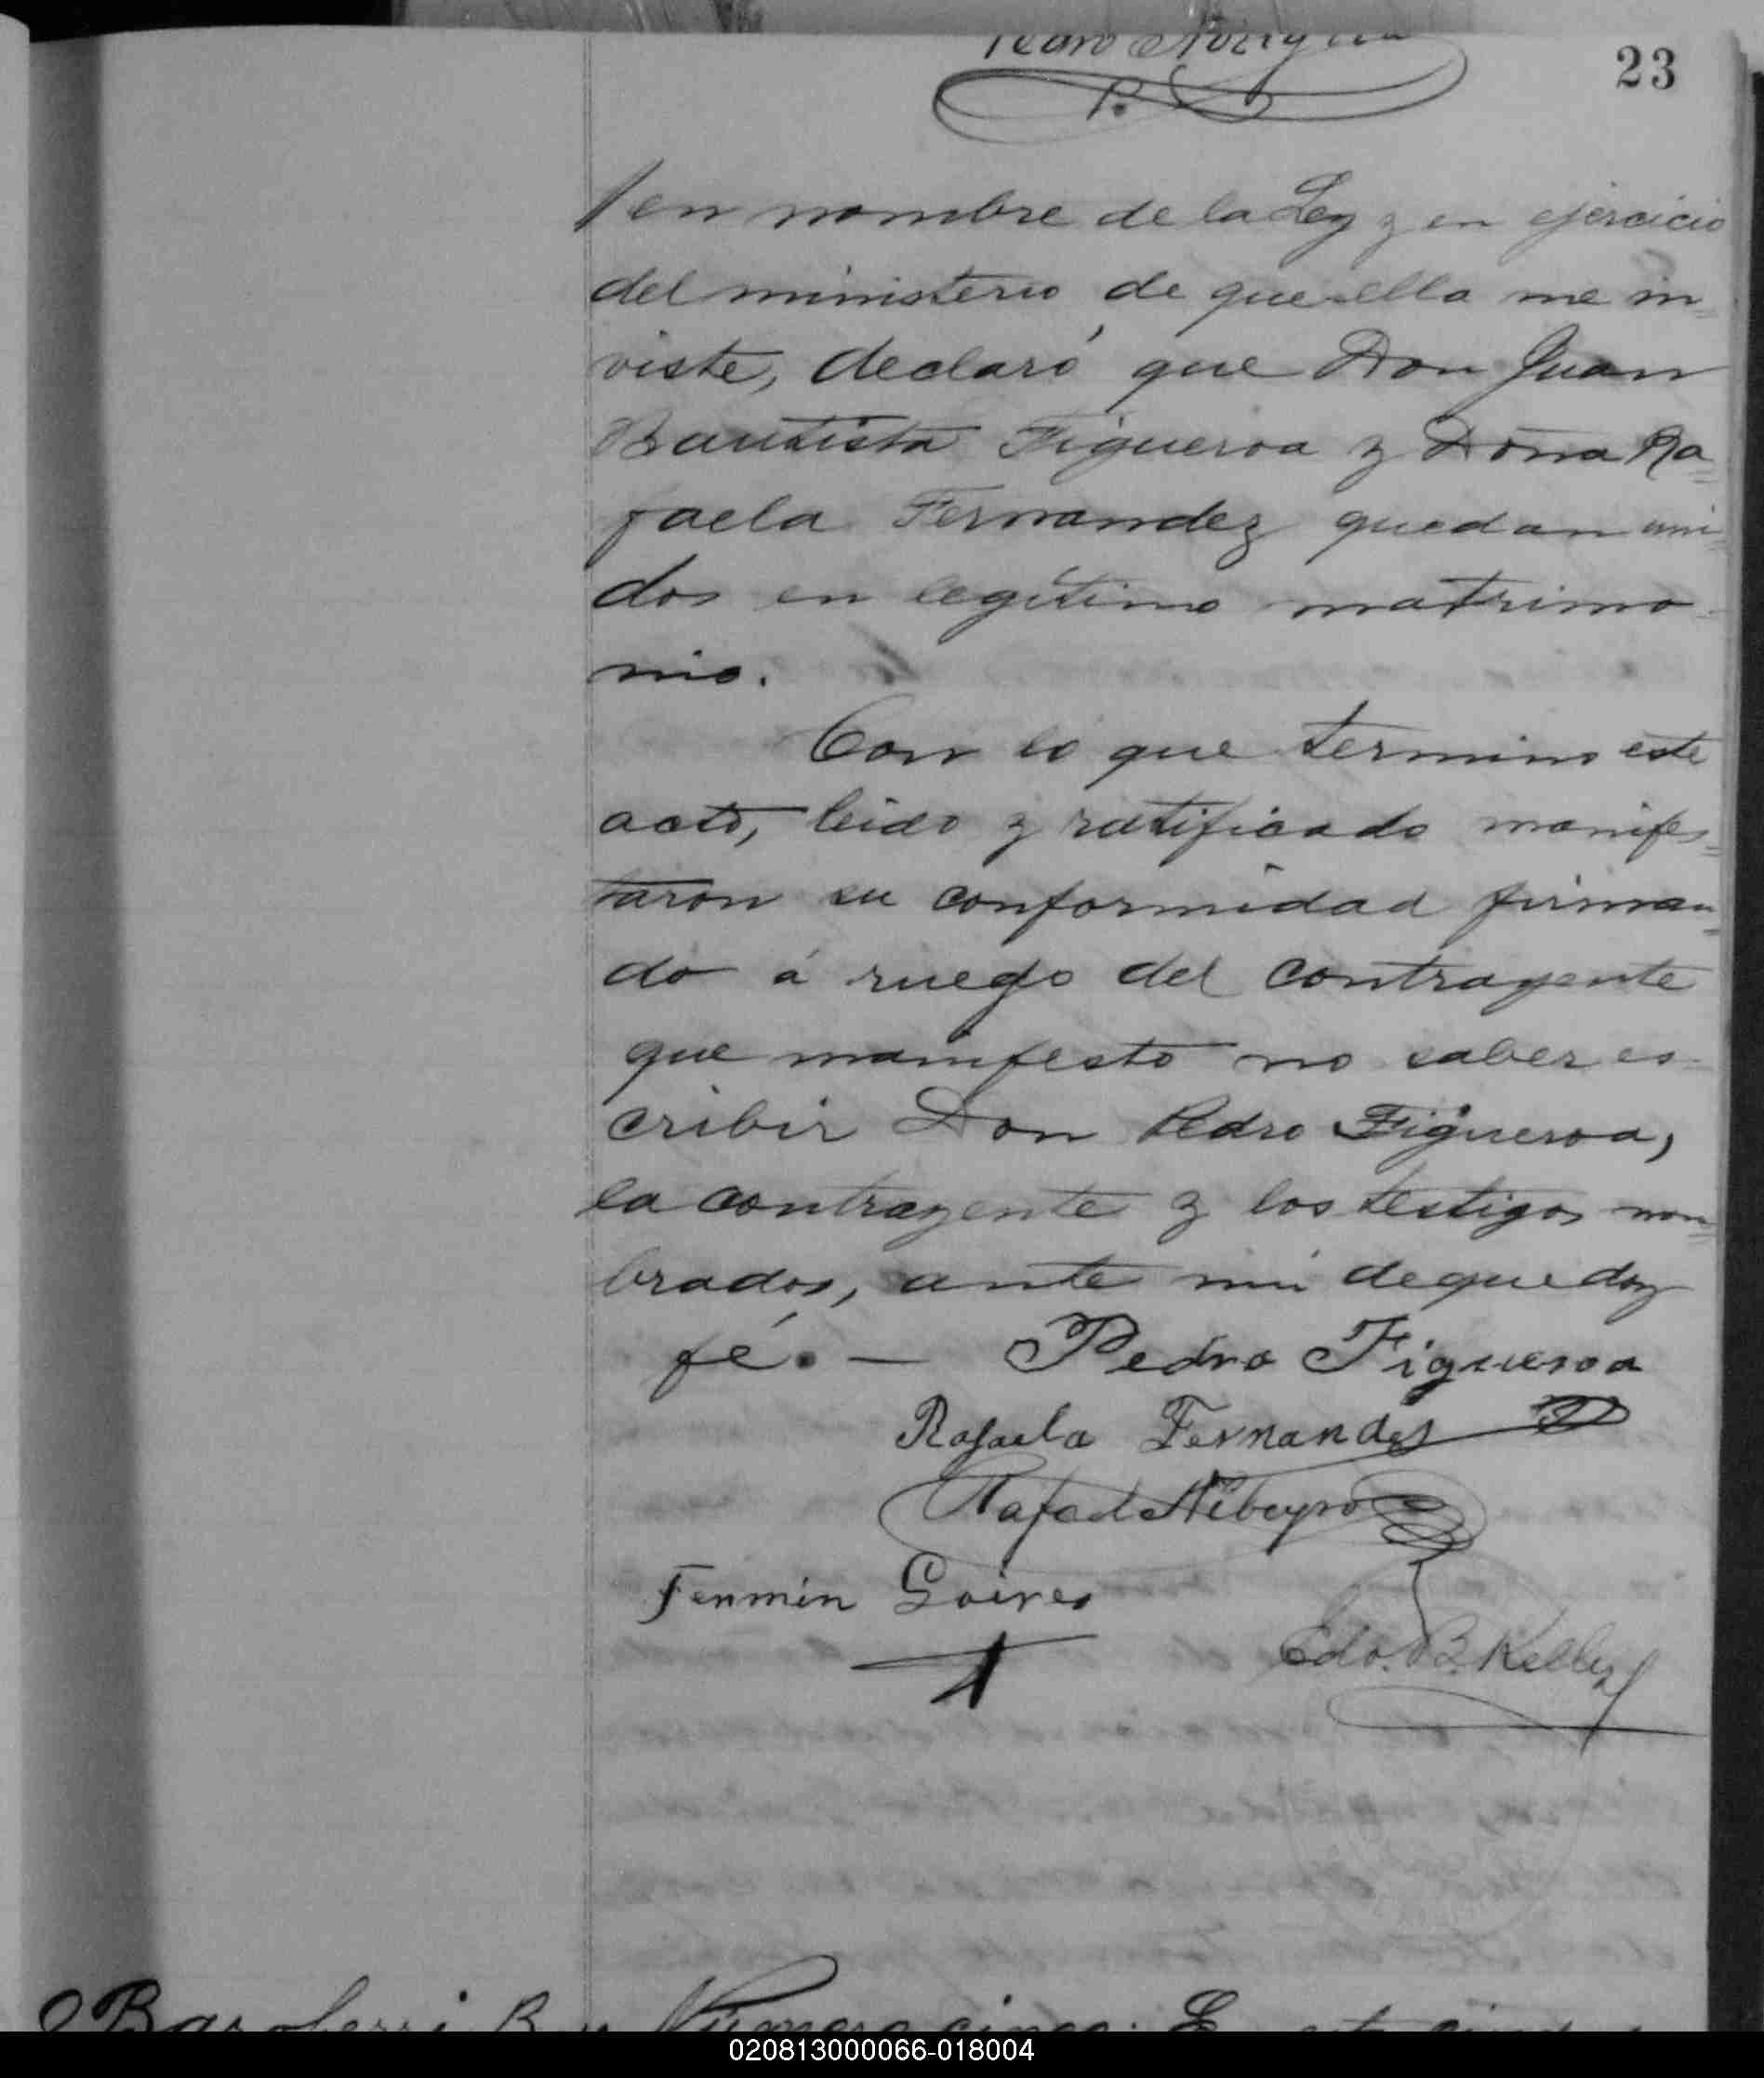 23
en nombre de la Ley y en ejercicio
del ministerio de que ella me in=
viste, declaró que Don Juan
Bautista Figueroa y Doña Ra=
faela Fernandez quedan uni=
dos en legítimo matrimo-
nio.
Con lo que termino este
acto, leido y ratificado manifes=
taron su conformidad firman=
do á ruego del contrayente
que manifesto no saber es-
cribir Don Pedro Figueroa,
la contrayente y los testigos nom=
brados, ante mi de que doy
fé. — Pedro Figueroa
Rafaela Fernandes
Rafael
Fermin
Edo. B. Kelly
Numero cinco:
020813000066-018004